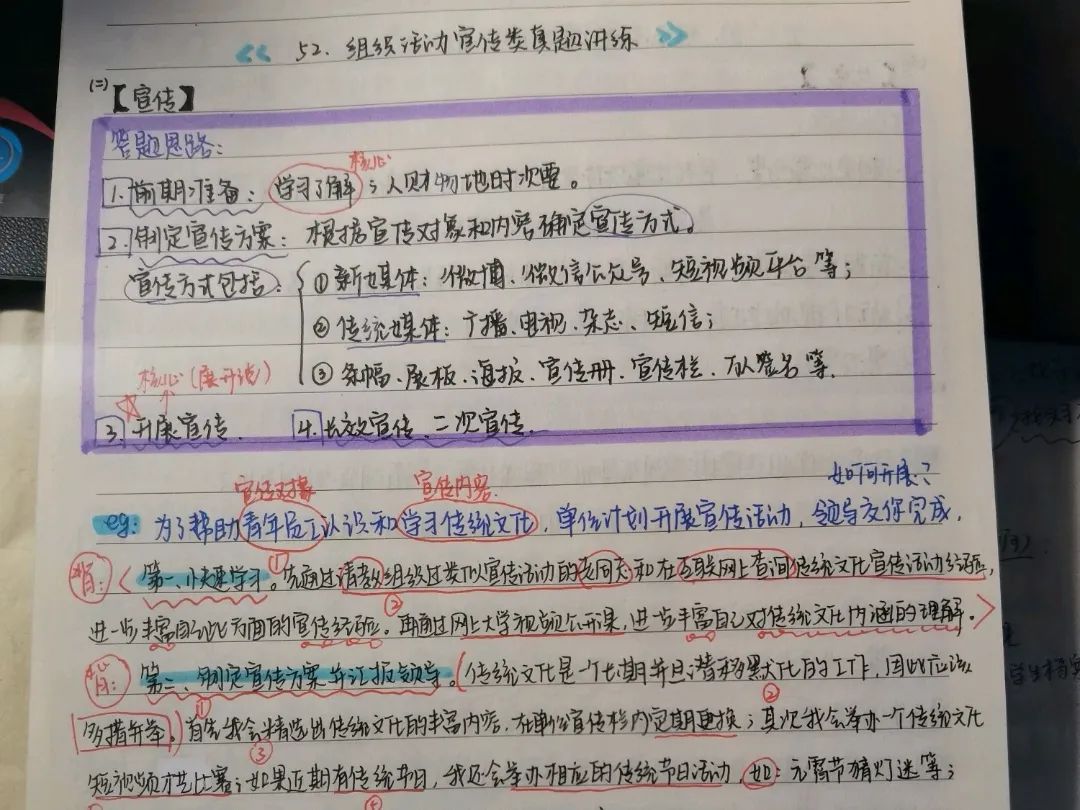 << 52. 组织活动宣传类真题讲练 >>
(二)【宣传】
答题思路:
核心
1. 前期准备: 学习了解; 人财物地时次要。
2. 制定宣传方案: 根据宣传对象和内容确定宣传方式。
宣传方式包括: ① 新媒体: 微博、微信公众号、短视频平台等;
② 传统媒体: 广播、电视、杂志、短信;
③ 条幅、展板、海报、宣传册、宣传栏、万人签名等.
核心(展开说)
☆
3. 开展宣传. 4. 长效宣传、二次宣传.
宣传对象 宣传内容 如何开展?
eg: 为了帮助青年员工认识和学习传统文化, 单位计划开展宣传活动, 领导交你完成,
背: < 第一、快速学习。①先通过请教组织过类似宣传活动的老同志和在互联网上查询传统文化宣传活动经验,
进一步丰富自己此方面的宣传经验。②再通过网上大学视频公开课, 进一步丰富自己对传统文化内涵的理解。>
背: 第二、制定宣传方案并汇报领导。(传统文化是一个长期并且潜移默化的工作, 因此应该
多措并举。)①首先我会精选出传统文化的丰富内容, 在单位宣传栏内定期更换; ②其次我会举办一个传统文化
短视频才艺比赛; ③如果近期有传统节日, 我还会举办相应的传统节日活动, 如: 元宵节猜灯迷等;
④